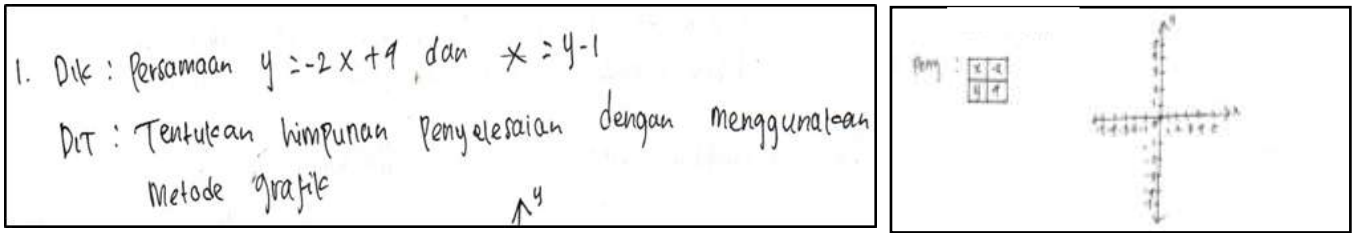 1. Dik : Persamaan y = -2x + 9 dan x = y - 1
DIT : Tentukan himpunan Penyelesaian dengan menggunakan
Metode grafik
y
y
Peny : x -2
y 9
x